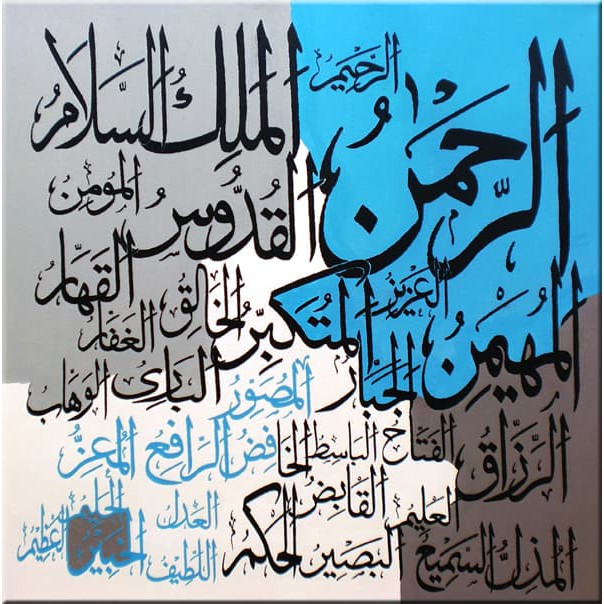 الرَّحِيمُ
الرَّحْمٰنُ
المَلِكُ السَّلَامُ
القُدُّوسُ المُؤمِنُ
المُهَيْمِنُ العَزِيزُ
الجَبَّارُ المُتَكَبِّرُ
الخَالِقُ القَهَّارُ
الغَفَّارُ
البَارِئُ الوَهَّابُ
المُصَوِّرُ
الرَّزَّاقُ الفَتَّاحُ البَاسِطُ
الخَافِضُ الرَّافِعُ المُعِزُّ
القَابِضُ
العَلِيمُ
المُذِلُّ السَّمِيعُ البَصِيرُ
الحَكَمُ العَدْلُ
اللَّطِيفُ الخَبِيرُ
الحَلِيمُ العَظِيمُ